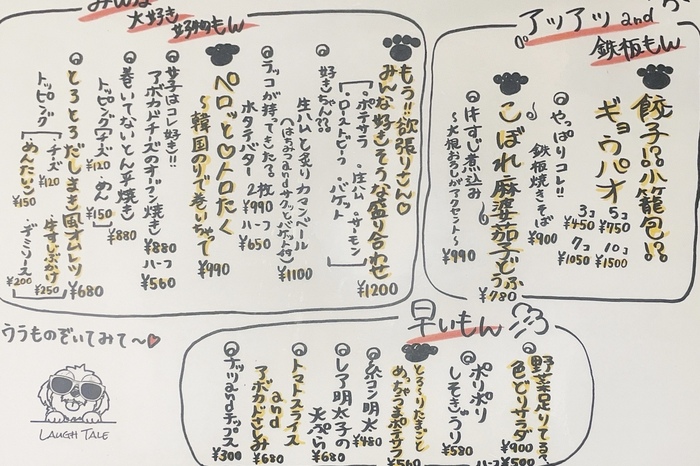 みんな
大好き
好物もん
もう!!欲張りさん♡
みんな好きそうな盛り合わせ
¥1200
・ポテサラ ・生ハム ・サーモン
・ローストビーフ ・バゲット
好きちゃん??
生ハムと炙りカマンベール
(はちみつandサクッとバゲット付)
¥1100
ラッコが持ってきた?2枚
¥990
水タテバター
ハーフ
¥650
ペロッと♡トロたく
〜韓国のりで巻いちゃって
¥990
女子はコレ好き!!
アボカドチーズのオーブン焼き
¥880
ハーフ
¥560
巻いてないとん平焼き
¥880
トッピング
チーズ
¥120
めん
¥150
とろとろだしまき風オムレツ
¥680
トッピング
チーズ
¥120
牛すじぶっかけ
¥250
めんたいこ
¥150
デミソース
¥200
アッアツand
鉄板もん
餃子!?小籠包!?
ギョウパオ
5コ
¥750
10コ
¥1500
3コ
¥450
7コ
¥1050
やっぱりコレ!!
鉄板焼きそば
¥900
こぼれ麻婆茄子どうふ
¥780
牛すじ煮込み
〜大根おろしがアクセント〜
¥990
早いもん
野菜足りてる?
色どりサラダ
¥900
ハーフ
¥500
ポリポリ
しそきゅうり
¥580
とろ〜りたまごと
めっちゃうまポテサラ
¥560
糸コン明太
¥480
レア明太子の
天ぷら
¥680
トマトスライス
and
アボカドさしみ
¥680
ナッツandチップス
¥300
ウラものぞいてみて〜♡
LAUGH TALE